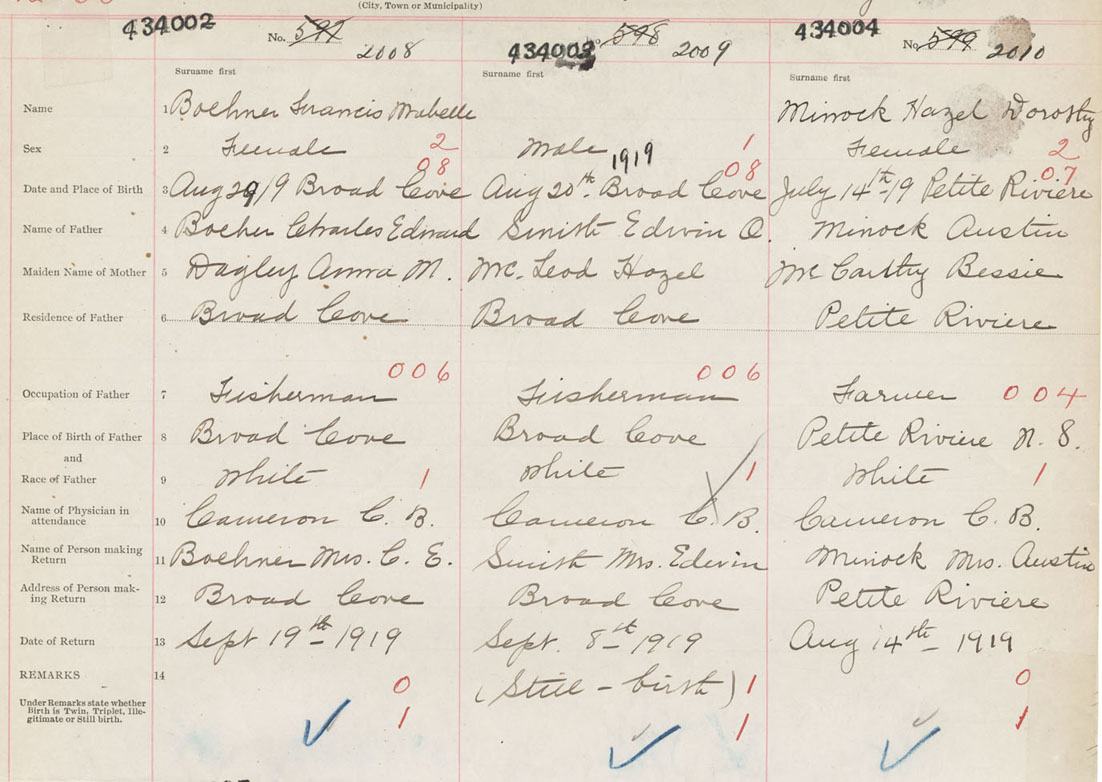 (City, Town or Municipality)
434002 No. 597 2008 434003 No. 598 2009 434004 No. 599 2010
Surname first Surname first Surname first
Name 1 Boehner Francis Mabelle Minock Hazel Dorothy
Sex 2 Female 2 Male 1 Female 2
1919
08 08 07
Date and Place of Birth 3 Aug 29/9 Broad Cove Aug 20th. Broad Cove July 14th-19 Petite Riviere
Name of Father 4 Boeher Charles Edward Smith Edwin O. Minock Austin
Maiden Name of Mother 5 Dagley Anna M. Mc. Leod Hazel Mc Carthy Bessie
Residence of Father 6 Broad Cove Broad Cove Petite Riviere
006 006
Occupation of Father 7 Fisherman Fisherman Farmer 004
Place of Birth of Father 8 Broad Cove Broad Cove Petite Riviere N. S.
and
Race of Father 9 White 1 White 1 White 1
Name of Physician in
attendance 10 Cameron C. B. Cameron C. B. Cameron C. B.
Name of Person making
Return 11 Boehner Mrs. C. E. Smith Mrs. Edwin Minock Mrs. Austin
Address of Person mak-
ing Return 12 Broad Cove Broad Cove Petite Riviere
Date of Return 13 Sept 19th-1919 Sept. 8th-1919 Aug 14th-1919
REMARKS 14 0 (Still-birth) 1 0
Under Remarks state whether
Birth is Twin, Triplet, Ille-
gitimate or Still birth. 1 1 1